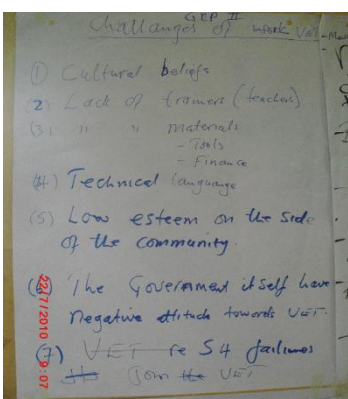 GEP II
Challanges of work VET
(1) Cultural beliefs
(2) Lack of trainers (teachers)
(3) " " materials
- Tools
- Finance
(4) Technical language
(5) Low esteem on the side
of the community.
(6) The Government itself have
Negative attitude towards VET.
(7) VET re S4 failures
Join the VET
22/7/2010 9:07